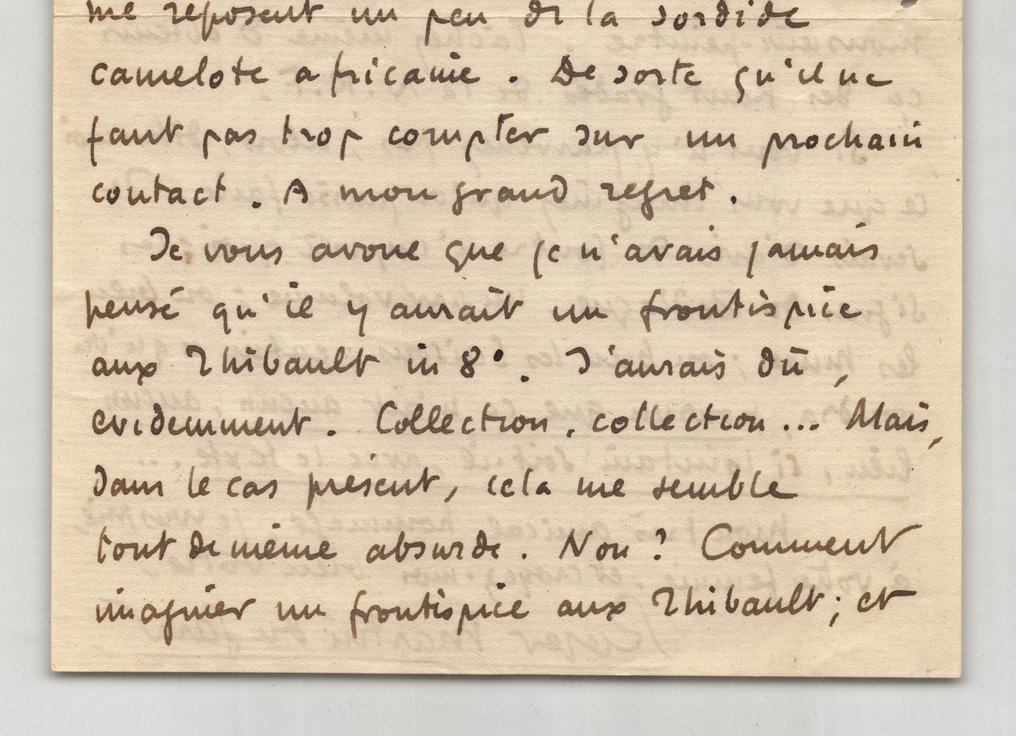 me reposent un peu de la sordide
camelote africaine. De sorte qu'il ne
faut pas trop compter sur un prochain
contact. A mon grand regret.
Je vous avoue que je n'avais jamais
pensé qu'il y aurait un frontispice
aux Thibault in 8°. J'aurais dû,
evidemment. Collection, collection... Mais,
dans le cas présent, cela me semble
tout de même absurde. Non? Comment
imaginer un frontispice aux Thibault; et